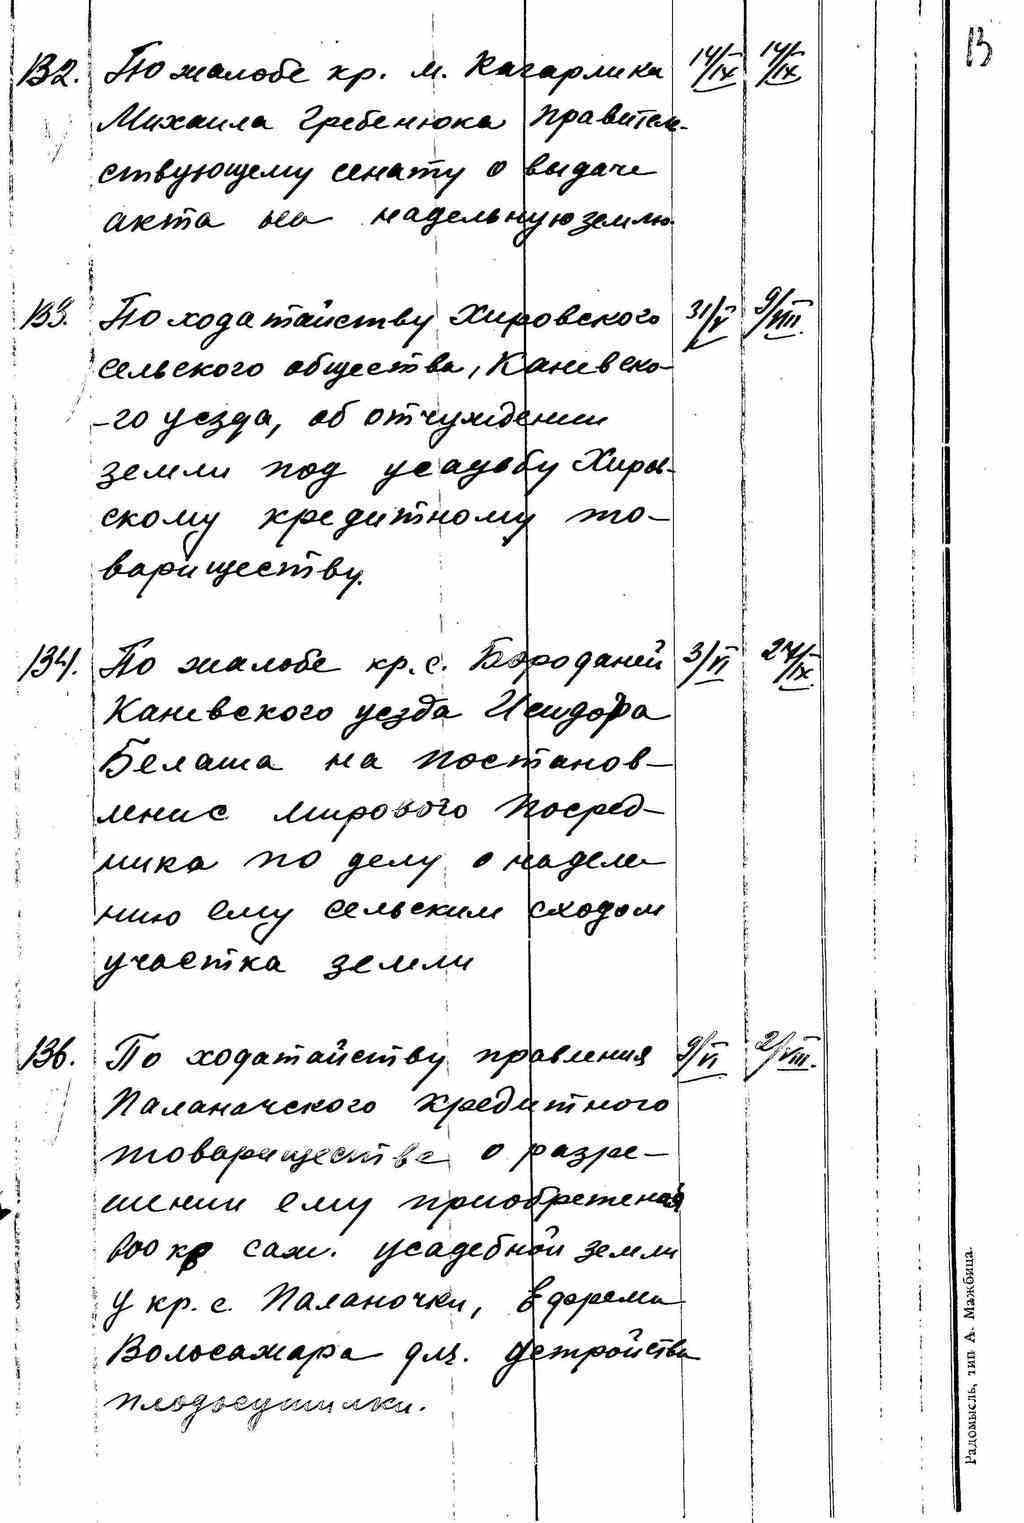 13
132. По жалобе кр. м. Кагарлика 14/IX 14/IX
Михаила Гребенюка Правитель-
ствующему сенату о выдаче
акта на надельную землю.
133. По ходатайству Хировского 31/V 9/VIII.
сельского общества, Каневско-
-го уезда, об отчуждении
земли под усадьбу Хиров-
скому кредитному то-
вариществу.
134. По жалобе кр. с. Бородавей 3/VI 24/IX.
Каневского уезда Исидора
Белаша на постанов-
ление мирового Посред-
ника по делу о наделе-
нию ему сельским сходом
участка земли
136. По ходатайству правления 9/VI 2/VIII.
Паланочского кредитного
товарищества о разре-
шении ему приобретения
800 кв саж. усадебной земли
у кр. с. Паланочки,
для. устройства
плодосушилки.
Радомысль, тип А. Мажбица.